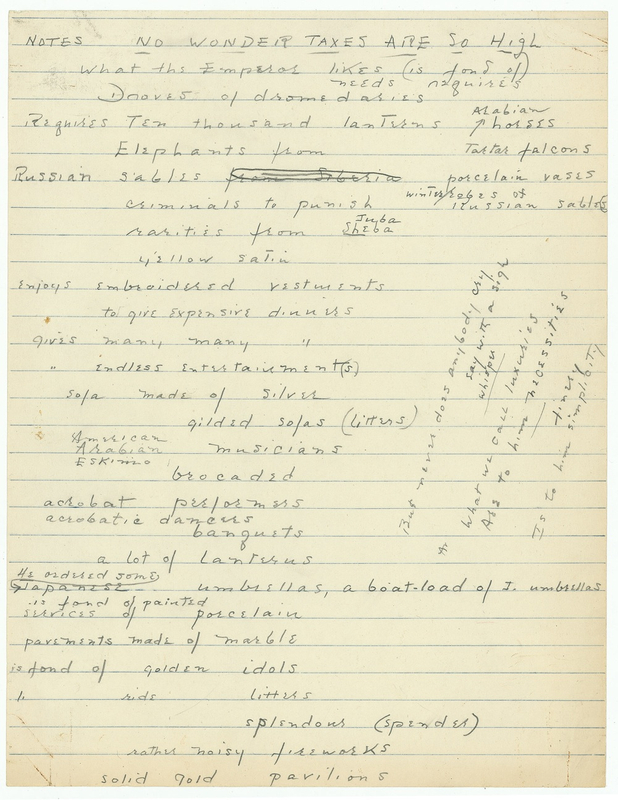 NOTES NO WONDER TAXES ARE SO HIGH
What the Emperor likes (is fond of)
needs requires
Droves of dromedaries
Arabian
Requires Ten thousand lanterns horses
Elephants from Tartar falcons
Russian sables from Siberia porcelain vases
criminals to punish winter robes of Russian sables
Juba
rarities from Sheba
yellow satin
enjoys embroidered vestments
to give expensive dinners
gives many many "
" endless entertainment(s)
sofa made of silver
gilded sofas (litters)
American
Arabian musicians
Eskimo
brocaded
acrobat performers
acrobatic dancers
banquets
a lot of lanterns
He ordered some
Japanese umbrellas, a boat-load of J. umbrellas
is fond of painted
services of porcelain
pavements made of marble
is fond of golden idols
ride litters
splendour (spender)
rather noisy fireworks
solid gold pavilions
But never does anybody cry
say with a sigh
whisper
What we call luxuries
Are to him necessities
finery
Is to him simplicity